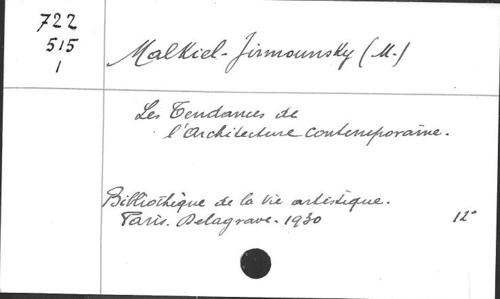 722
515
1
Malkiel-Jirmounsky (M.)
Les Tendances de
l'Architecture contemporaine.
Bibliothèque de la Vie artistique.
Paris. Delagrave. 1930 12°